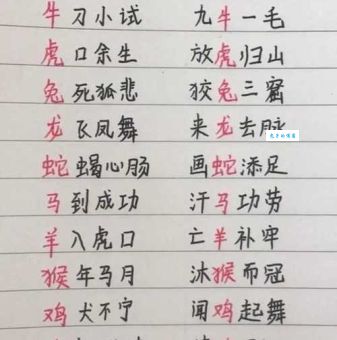 牛刀小试 九牛一毛
虎口余生 放虎归山
兔死狐悲 狡兔三窟
龙飞凤舞 来龙去脉
蛇蝎心肠 画蛇添足
马到成功 汗马功劳
羊入虎口 亡羊补牢
猴年马月 沐猴而冠
鸡犬不宁 闻鸡起舞